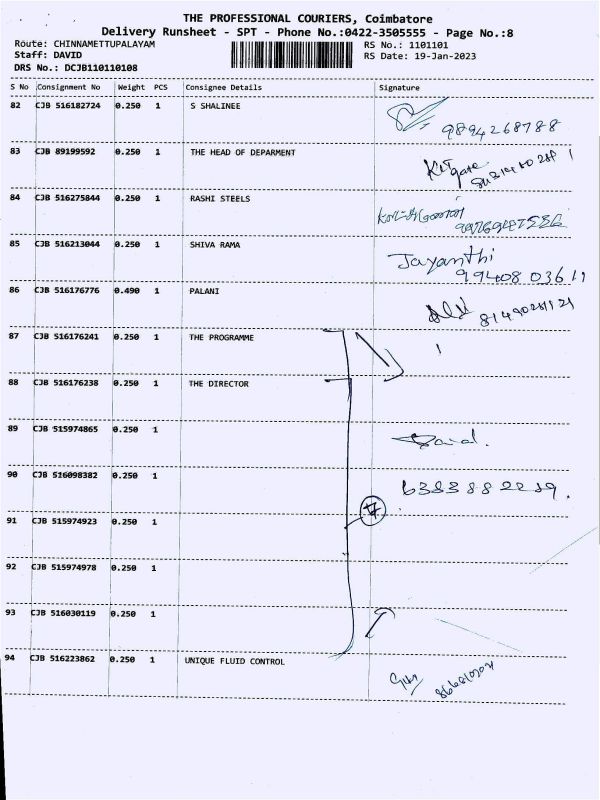 THE PROFESSIONAL COURIERS, Coimbatore
Delivery Runsheet - SPT - Phone No.:0422-3505555 - Page No.:8
Route: CHINNAMETTUPALAYAM
RS No.: 1101101
Staff: DAVID
RS Date: 19-Jan-2023
DRS No.: DCJB110110108
S No Consignment No Weight PCS Consignee Details Signature
82 CJB 516182724 0.250 1 S SHALINEE
9894268788
83 CJB 89199592 0.250 1 THE HEAD OF DEPARMENT
84 CJB 516275844 0.250 1 RASHI STEELS
85 CJB 516213044 0.250 1 SHIVA RAMA
Jayanthi
99408 03611
86 CJB 516176776 0.490 1 PALANI
87 CJB 516176241 0.250 1 THE PROGRAMME
88 CJB 516176238 0.250 1 THE DIRECTOR
89 CJB 515974865 0.250 1
90 CJB 516098382 0.250 1
6383882289.
91 CJB 515974923 0.250 1
92 CJB 515974978 0.250 1
93 CJB 516030119 0.250 1
94 CJB 516223862 0.250 1 UNIQUE FLUID CONTROL